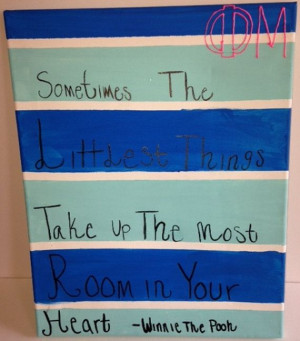 ΦM
Sometimes The
Littlest Things
Take up The most
Room in Your
Heart -Winnie The Pooh